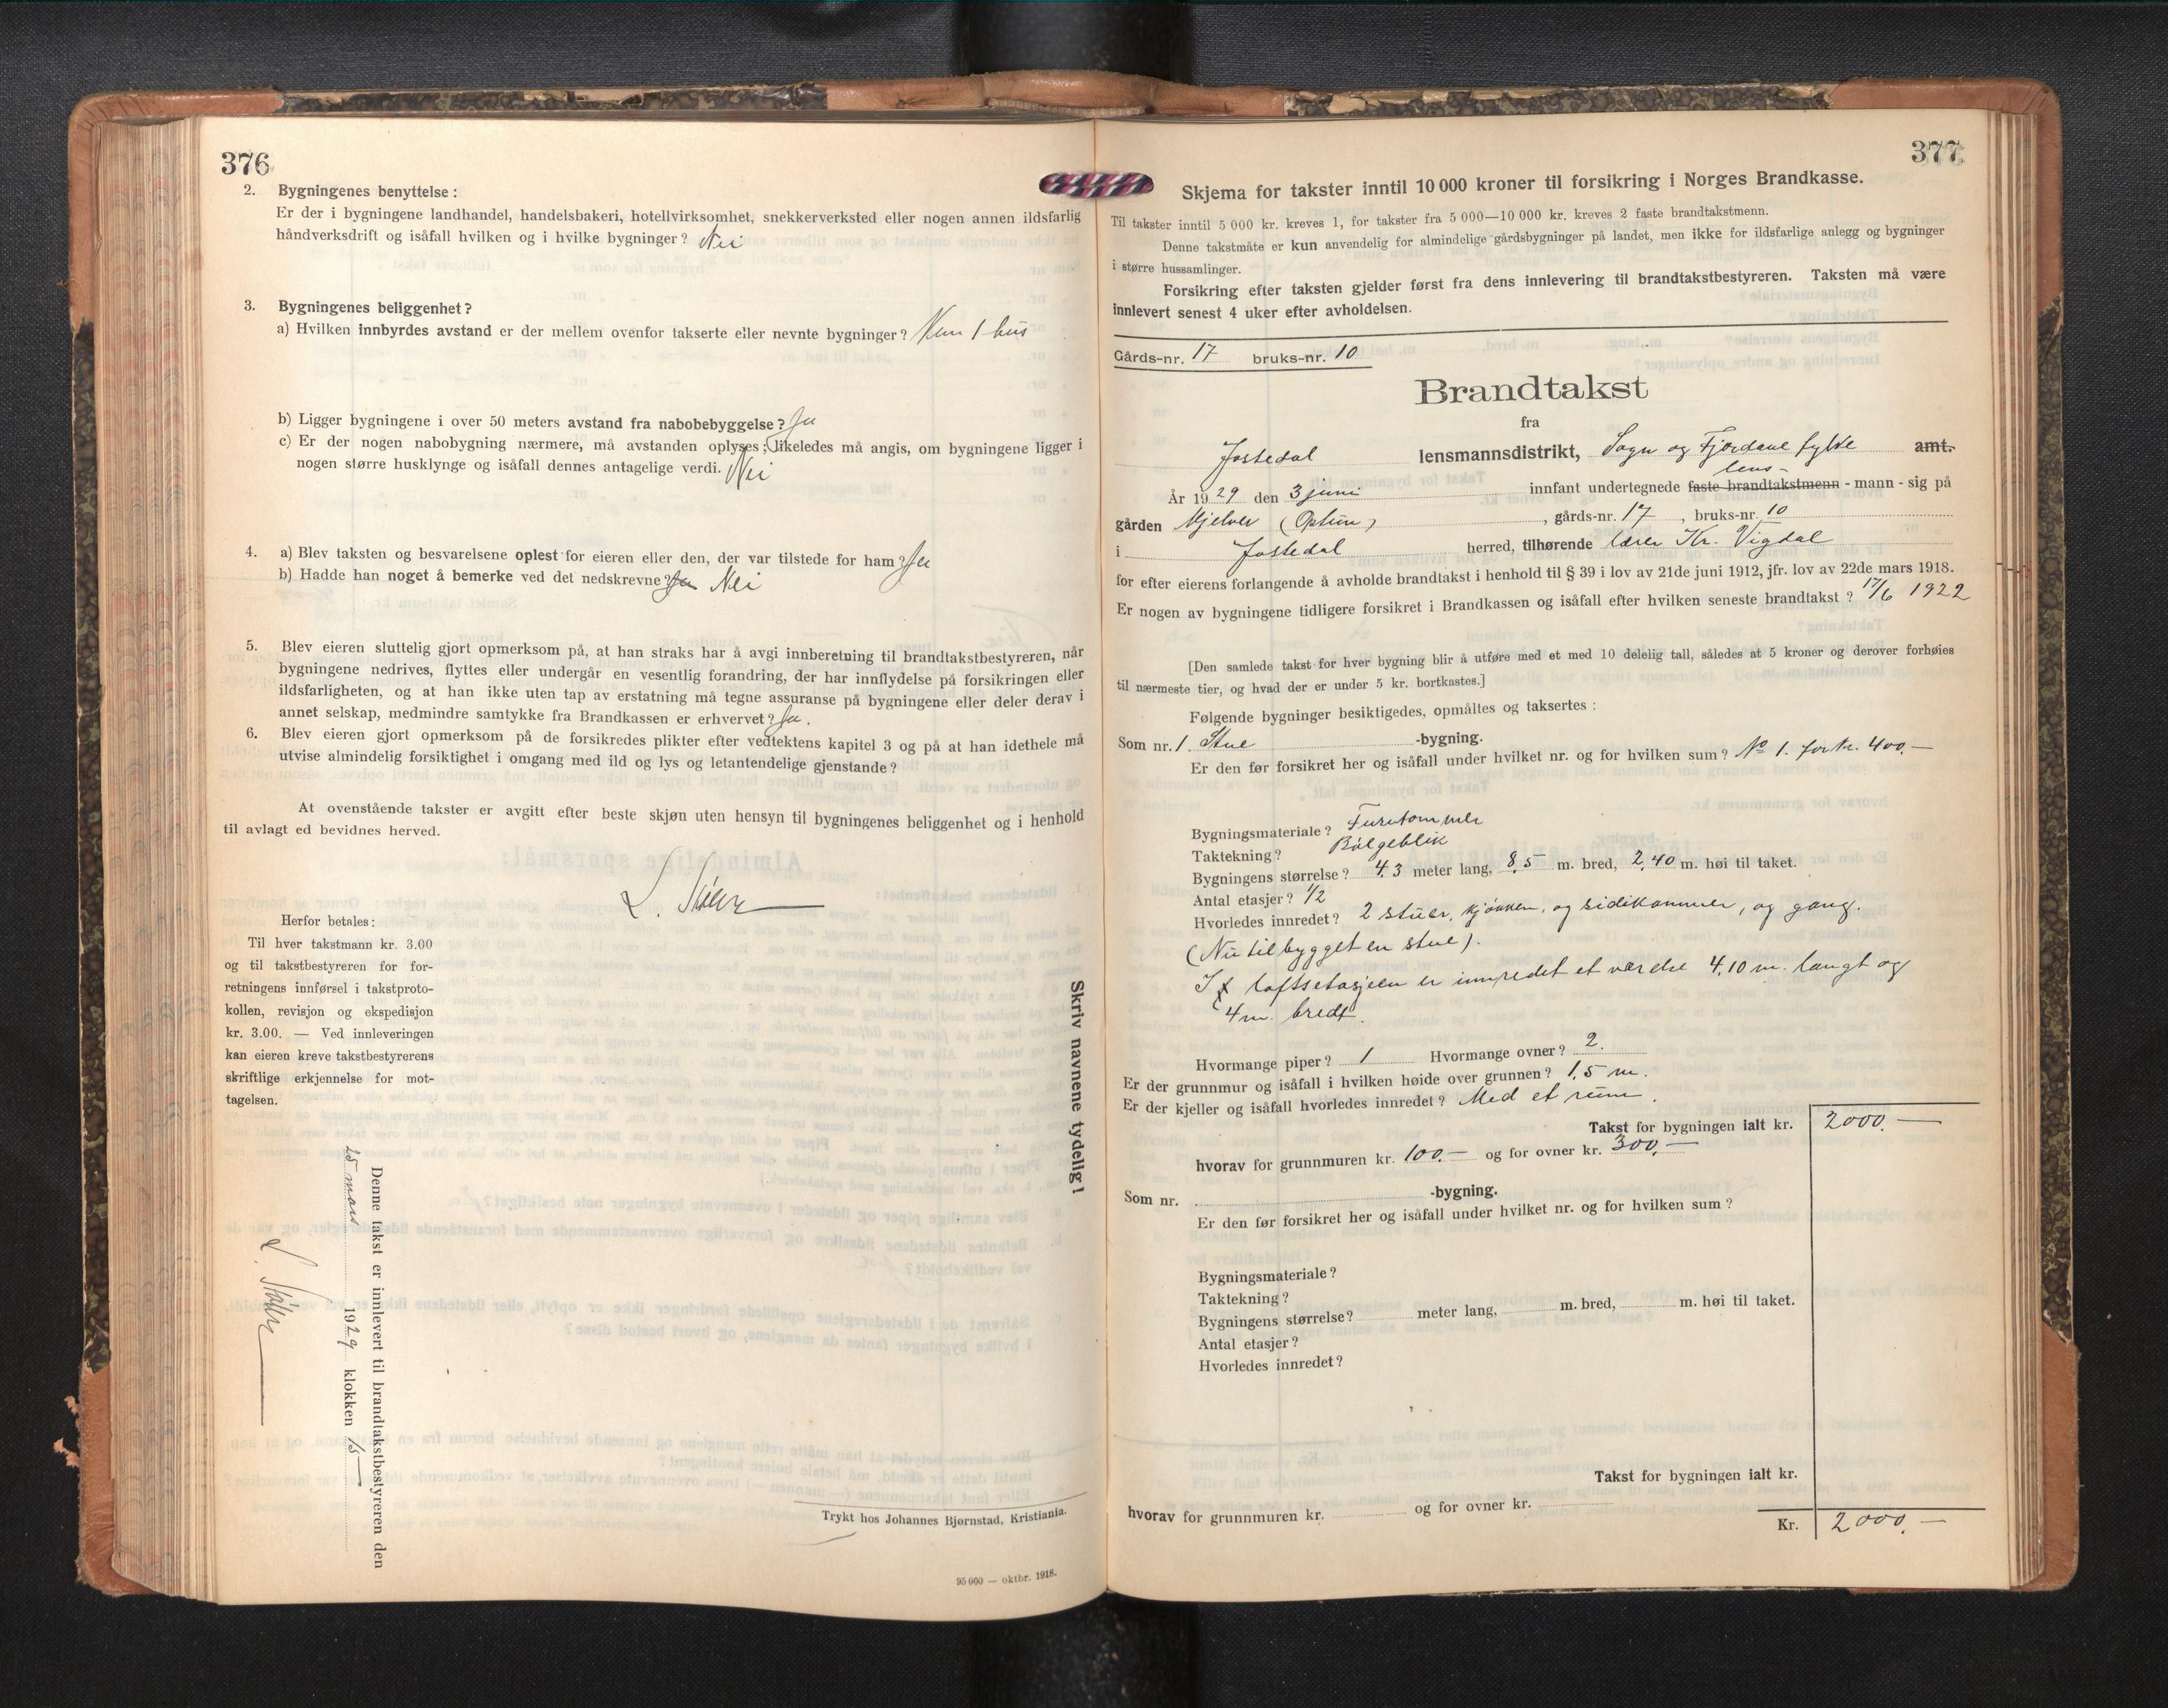 376
2. Bygningenes benyttelse :
Er der i bygningene landhandel, handelsbakeri, hotellvirksomhet, snekkerverksted eller nogen annen ildsfarlig
håndverksdrift og isåfall hvilken og i hvilke bygninger? Nei
3. Bygningenes beliggenhet?
a) Hvilken innbyrdes avstand er der mellem ovenfor takserte eller nevnte bygninger? Kun 1 hus
b) Ligger bygningene i over 50 meters avstand fra nabobebyggelse? Ja
c) Er der nogen nabobygning nærmere, må avstanden oplyses; likeledes må angis, om bygningene ligger i
nogen større husklynge og isåfall dennes antagelige verdi. Nei
4. a) Blev taksten og besvarelsene oplest for eieren eller den, der var tilstede for ham? Ja
b) Hadde han noget å bemerke ved det nedskrevne? Ja Nei
5. Blev eieren sluttelig gjort opmerksom på, at han straks har å avgi innberetning til brandtakstbestyreren, når
bygningene nedrives, flyttes eller undergår en vesentlig forandring, der har innflydelse på forsikringen eller
ildsfarligheten, og at han ikke uten tap av erstatning må tegne assuranse på bygningene eller deler derav i
annet selskap, medmindre samtykke fra Brandkassen er erhvervet? Ja.
6. Blev eieren gjort opmerksom på de forsikredes plikter efter vedtektens kapitel 3 og på at han idethele må
utvise almindelig forsiktighet i omgang med ild og lys og letantendelige gjenstande?
At ovenstående takster er avgitt efter beste skjøn uten hensyn til bygningenes beliggenhet og i henhold
til avlagt ed bevidnes herved.
Herfor betales:
Til hver takstmann kr. 3.00
og til takstbestyreren for for-
retningens innførsel i takstproto-
kollen, revisjon og ekspedisjon
kr. 3.00. — Ved innleveringen
kan eieren kreve takstbestyrerens
skriftlige erkjennelse for mot-
tagelsen.
Skriv navnene tydelig!
Denne takst er innlevert til brandtakstbestyreren den
25 mars 1929 klokken 15
Trykt hos Johannes Bjørnstad, Kristiania.
95 000 — oktbr. 1918.
377
Skjema for takster inntil 10 000 kroner til forsikring i Norges Brandkasse.
Til takster inntil 5 000 kr. kreves 1, for takster fra 5 000—10 000 kr. kreves 2 faste brandtakstmenn.
Denne takstmåte er kun anvendelig for almindelige gårdsbygninger på landet, men ikke for ildsfarlige anlegg og bygninger
i større hussamlinger.
Forsikring efter taksten gjelder først fra dens innlevering til brandtakstbestyreren. Taksten må være
innlevert senest 4 uker efter avholdelsen.
Gårds-nr. 17 bruks-nr. 10
Brandtakst
fra
Jostedal lensmannsdistrikt, Sogn og Fjordane fylke amt.
År 1929 den 3 juni innfant undertegnede faste brandtakstmenn lens- - mann - sig på
gården Mjelver (Optun), gårds-nr. 17, bruks-nr. 10
i Jostedal herred, tilhørende lærer Kr. Vigdal
for efter eierens forlangende å avholde brandtakst i henhold til § 39 i lov av 21de juni 1912, jfr. lov av 22de mars 1918.
Er nogen av bygningene tidligere forsikret i Brandkassen og isåfall efter hvilken seneste brandtakst? 17/6 1922
[Den samlede takst for hver bygning blir å utføre med et med 10 delelig tall, således at 5 kroner og derover forhøies
til nærmeste tier, og hvad der er under 5 kr. bortkastes.]
Følgende bygninger besiktigedes, opmåltes og taksertes :
Som nr. 1. Stue -bygning.
Er den før forsikret her og isåfall under hvilket nr. og for hvilken sum? No 1. for kr. 400.—
Bygningsmateriale? Furutømmer
Taktekning? Bølgeblik
Bygningens størrelse? 4,3 meter lang, 8,5 m. bred, 2,40 m. høi til taket.
Antal etasjer? 1/2
Hvorledes innredet? 2 stuer, kjøkken, og sidekammer, og gang.
(Nu tilbygget en stue).
I loftsetasjeen er innredet et værelse 4,10 m. langt og
4 m. bredt.
Hvormange piper? 1 Hvormange ovner? 2.
Er der grunnmur og isåfall i hvilken høide over grunnen? 1,5 m.
Er der kjeller og isåfall hvorledes innredet? Med et rum.
Takst for bygningen ialt kr. 2000.—
hvorav for grunnmuren kr. 100.— og for ovner kr. 300.—
Som nr. -bygning.
Er den før forsikret her og isåfall under hvilket nr. og for hvilken sum?
Bygningsmateriale?
Taktekning?
Bygningens størrelse? meter lang, m. bred, m. høi til taket.
Antal etasjer?
Hvorledes innredet?
Takst for bygningen ialt kr.
hvorav for grunnmuren kr. og for ovner kr.
Kr. 2000.—